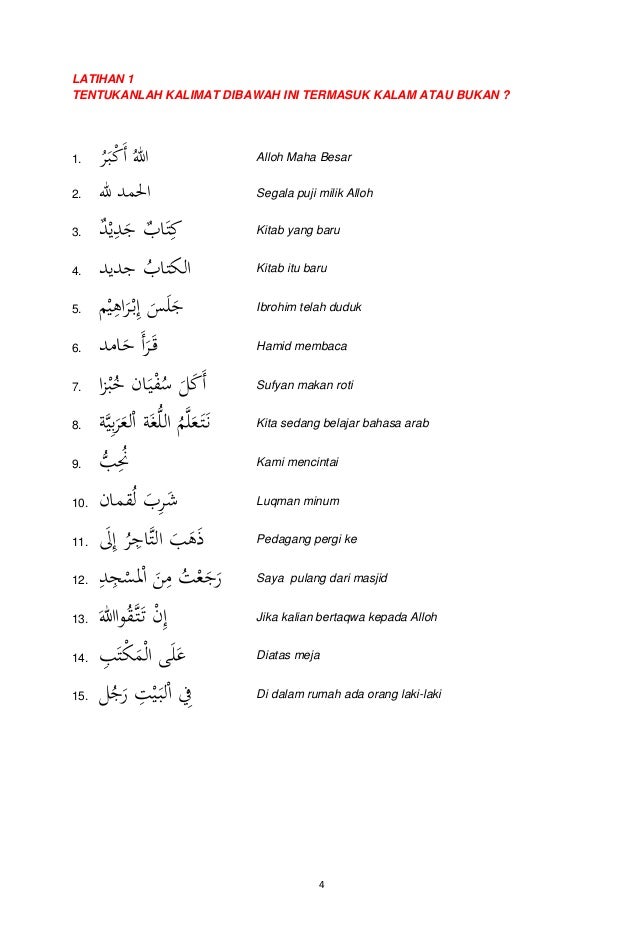 LATIHAN 1
TENTUKANLAH KALIMAT DIBAWAH INI TERMASUK KALAM ATAU BUKAN ?
1. اللهُ أَكْبَرُ Alloh Maha Besar
2. الحمد لله Segala puji milik Alloh
3. كِتَابٌ جَدِيْدٌ Kitab yang baru
4. الكتابُ جديد Kitab itu baru
5. جَلَسَ إِبْرَاهِيْم Ibrohim telah duduk
6. قَرَأَ حَامد Hamid membaca
7. أَكَلَ سُفْيَان خُبْزا Sufyan makan roti
8. نَتَعَلَّمُ اللُّغَة الْعَرَبِيَّة Kita sedang belajar bahasa arab
9. نُحِبُّ Kami mencintai
10. شَرِبَ لُقمان Luqman minum
11. ذَهَبَ التَّاجِرُ إِلَى Pedagang pergi ke
12. رَجَعْتُ مِنَ الْمسْجِدِ Saya pulang dari masjid
13. إِنْ تَتَّقُوااللهَ Jika kalian bertaqwa kepada Alloh
14. عَلَى الْمَكْتَبِ Diatas meja
15. فِي الْبَيْتِ رَجُل Di dalam rumah ada orang laki-laki
4